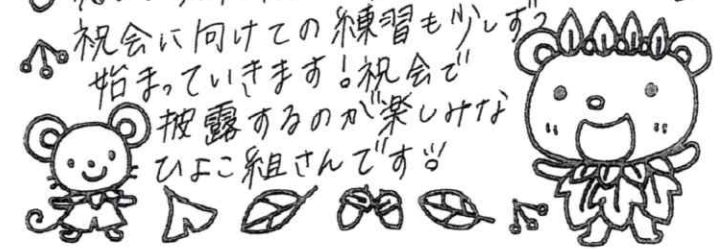 祝会に向けての練習も少しずつ
始まっていきます！祝会で
披露するのが楽しみな
ひよこ組さんです